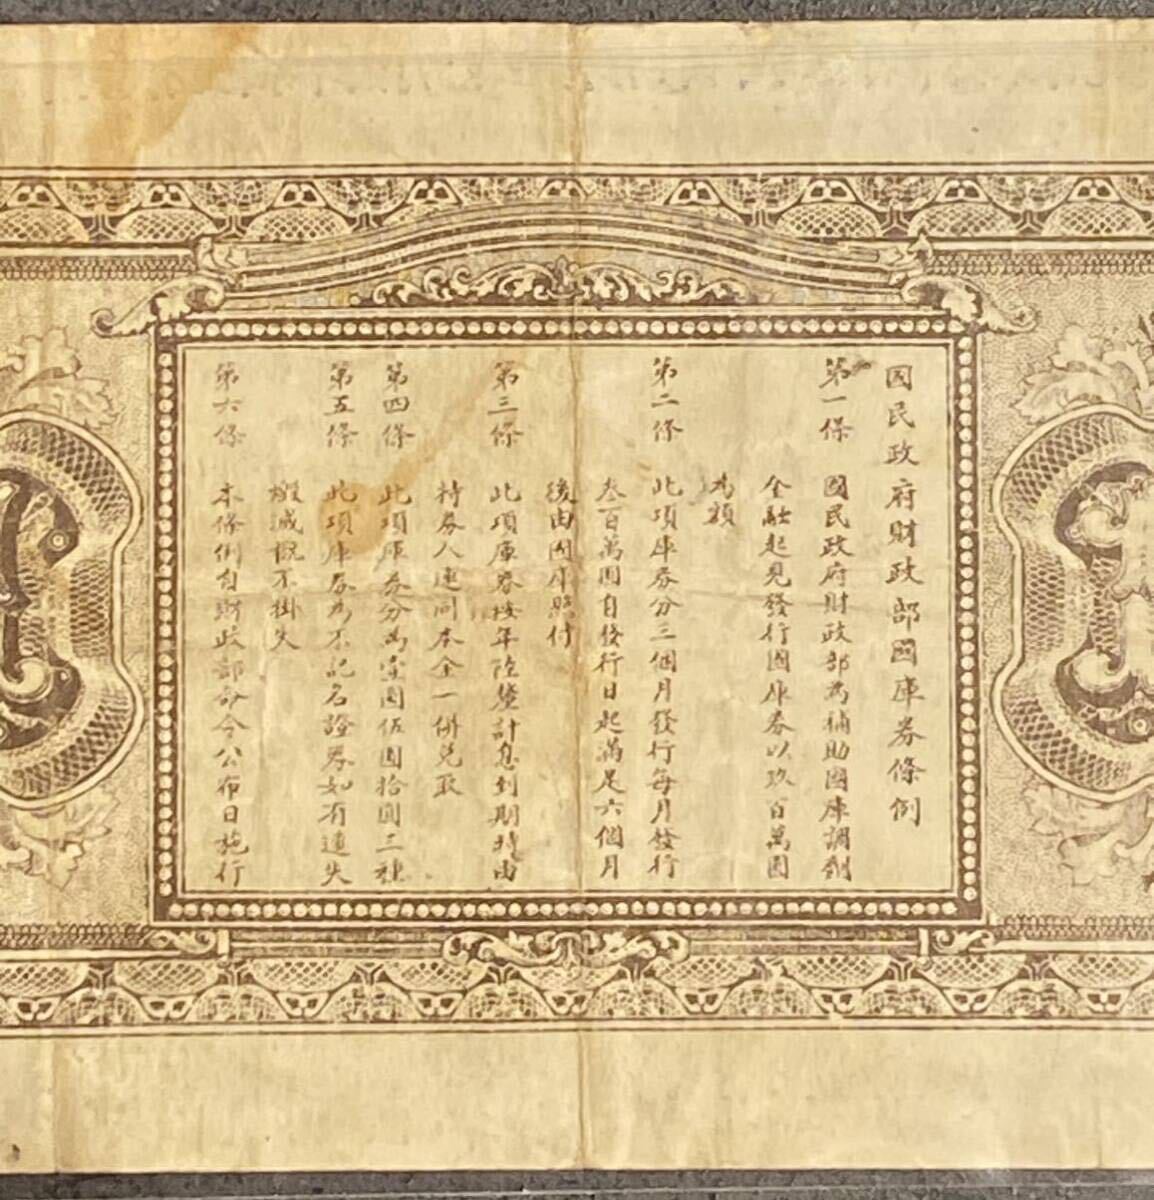 國民政府財政部國庫券條例
第一條 國民政府財政部為補助國庫調劑
金融起見發行國庫券以玖百萬圓
為額
第二條 此項庫券分三個月發行每月發行
叁百萬圓自發行日起滿足六個月
後由國庫照付
第三條 此項庫券按年陸釐計息到期時由
持券人連同本金一併兌取
第四條 此項庫券分為壹圓伍圓拾圓三種
第五條 此項庫券為不記名證券如有遺失
燬滅概不掛失
第六條 本條例自財政部部令公布日施行